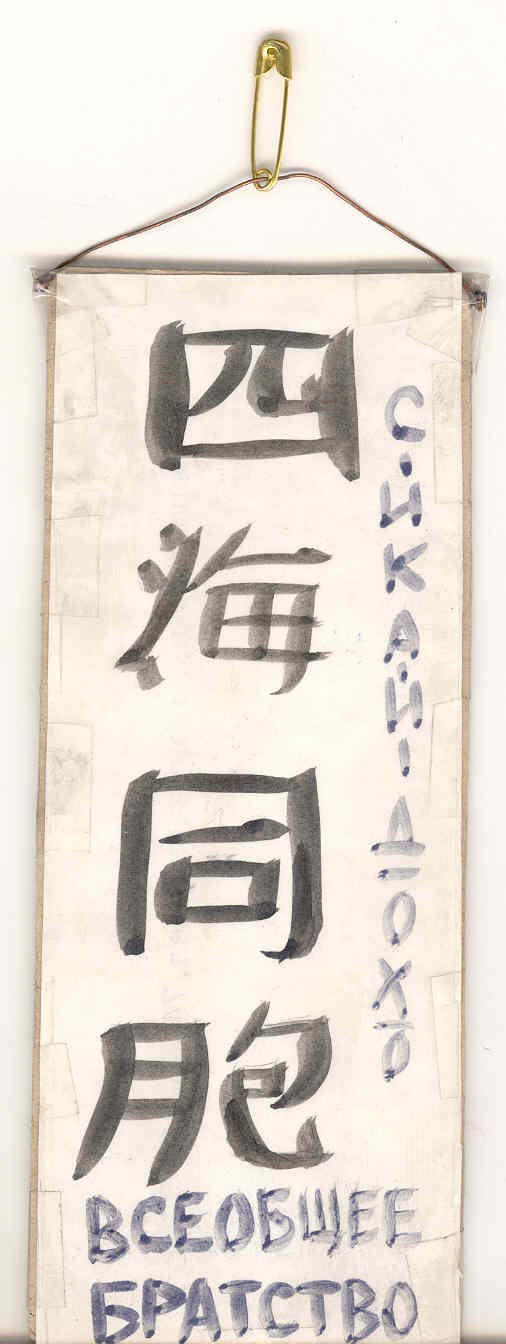 四海同胞
СИКАЙ-ДО̄ХО̄
ВСЕОБЩЕЕ
БРАТСТВО